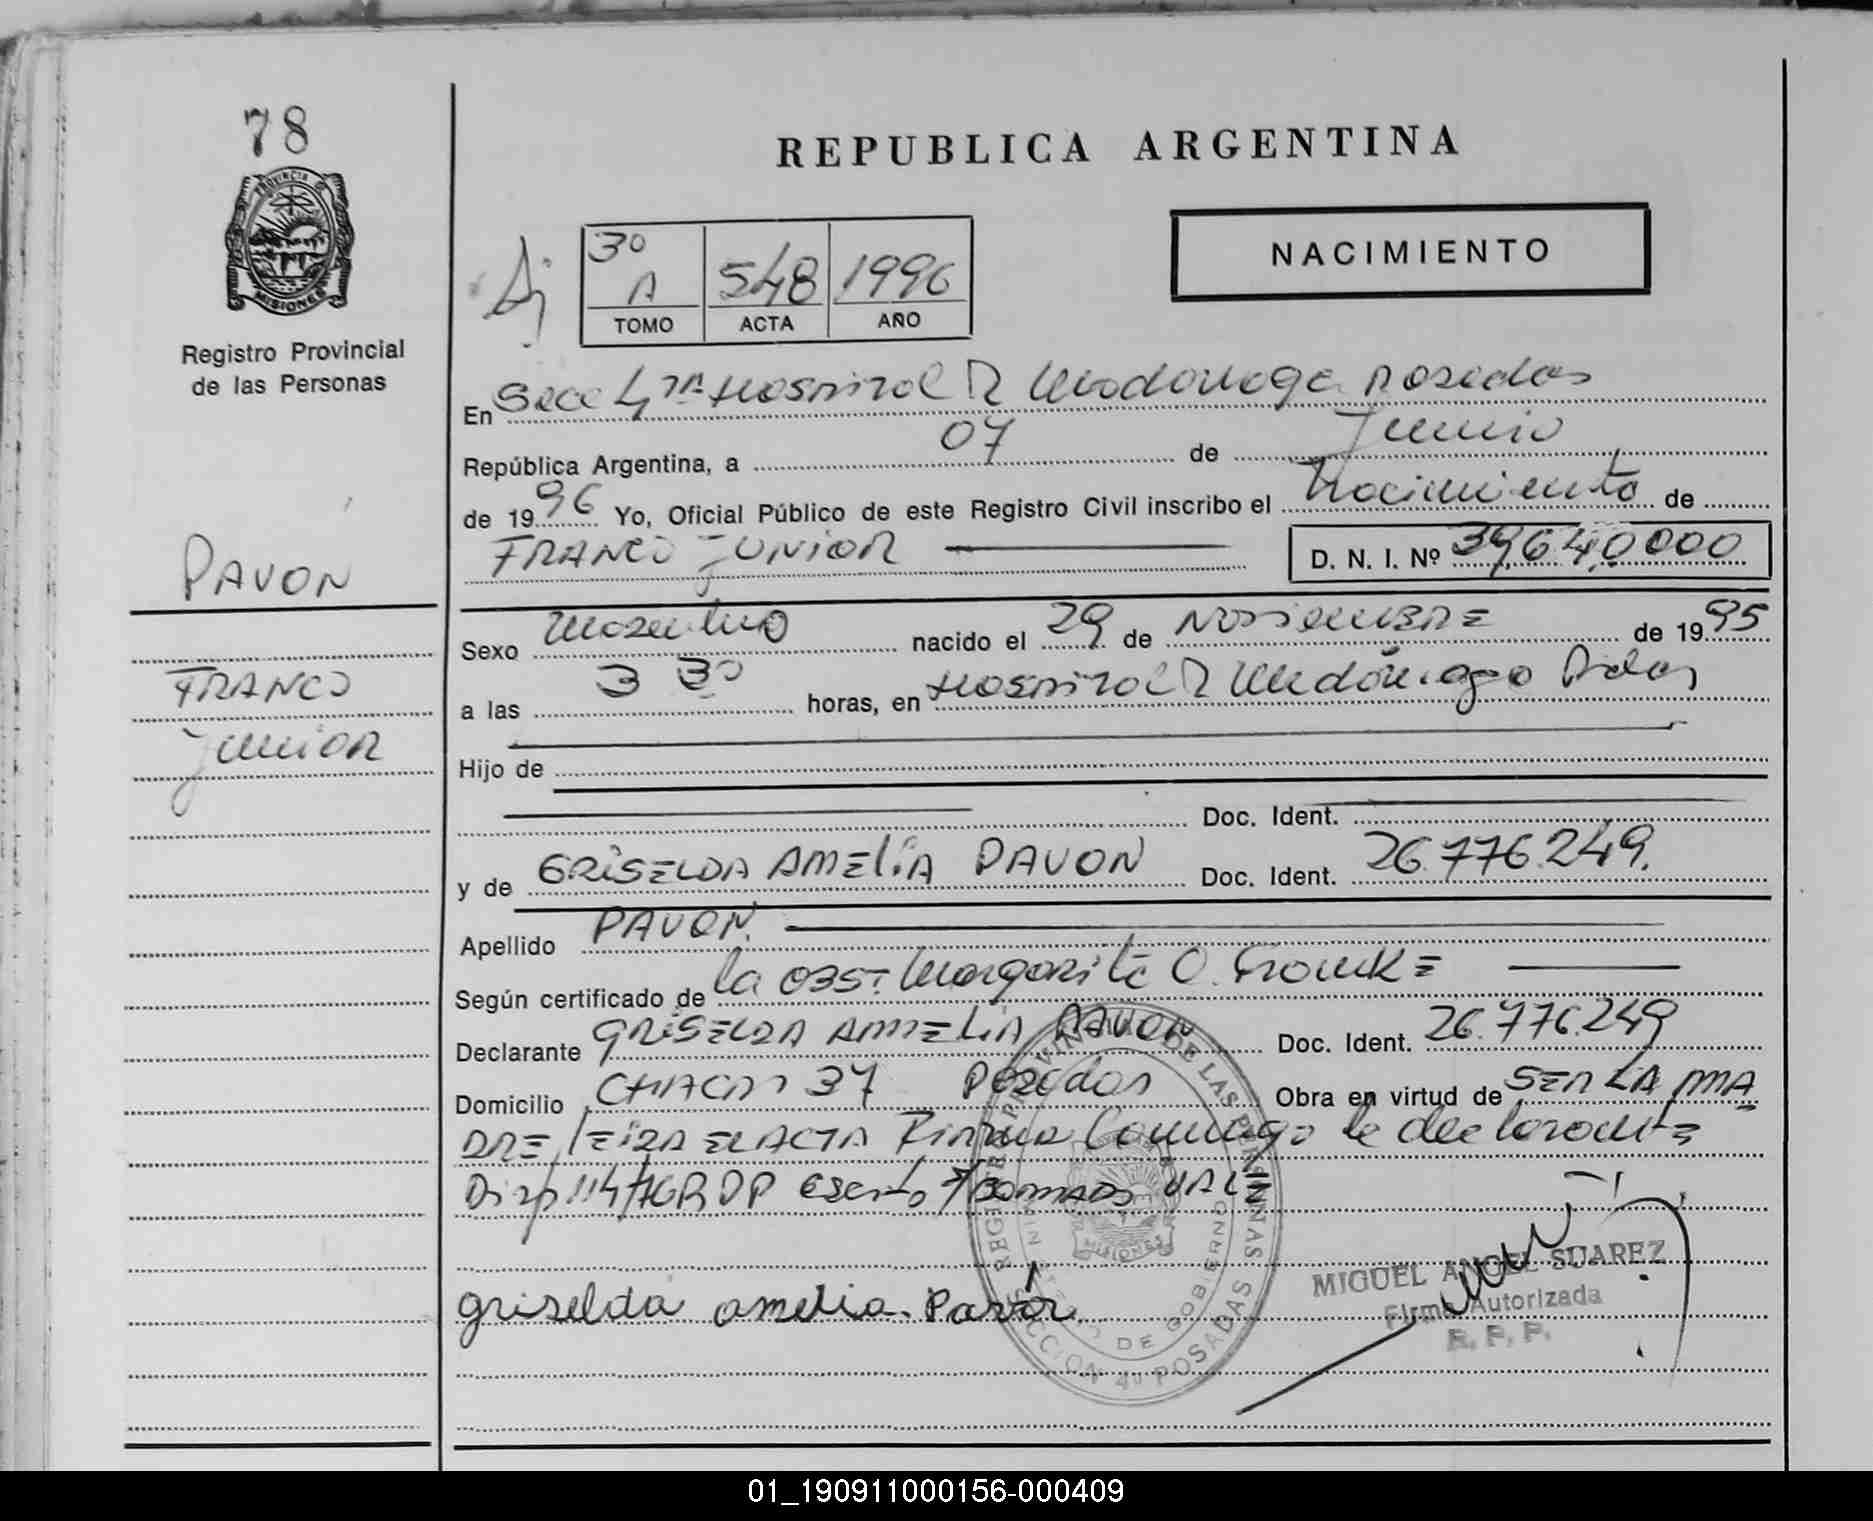 78
PROVINCIA DE
MISIONES
Registro Provincial
de las Personas
PAVON
FRANCO
Junior
REPUBLICA ARGENTINA
NACIMIENTO
3º
A 548 1996
TOMO ACTA AÑO
En Secc 4ta Hospital R Madariaga Posadas
República Argentina, a 07 de Junio
de 1996 Yo, Oficial Público de este Registro Civil inscribo el Nacimiento de
FRANCO JUNIOR D. N. I. Nº 39,640,000
Sexo Masculino nacido el 29 de NOVIEMBRE de 1995
a las 3 30 horas, en Hospital R Madariaga Pdas
Hijo de
Doc. Ident.
y de GRISELDA AMELIA PAVON Doc. Ident. 26.776.249.
Apellido PAVON
Según certificado de la OBST Margarita O. Franke
Declarante GRISELDA AMELIA PAVON Doc. Ident. 26.776.249
Domicilio CHACO 37 Posadas Obra en virtud de SER LA MA
DRE LEIDA EL ACTA Firma Conmigo la declarante
Disp 114/76 RPP VALEN
griselda amelia. Pavón
REGISTRO PROVINCIAL DE LAS PERSONAS
MINISTERIO DE GOBIERNO
MISIONES
SECCION 4º POSADAS
MIGUEL ANGEL SUAREZ
Firma Autorizada
R. P. P.
01_190911000156-000409